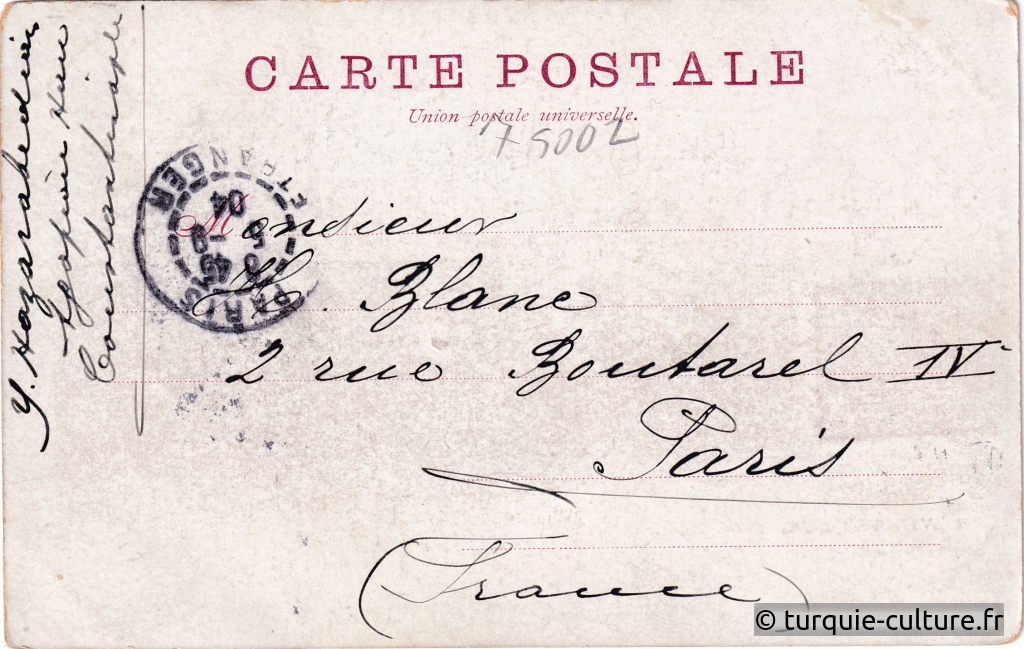 CARTE POSTALE
Union postale universelle.
Y. Hazarabedian
Han
Constantinople
PARIS ETRANGER
04
Monsieur
H. Blanc
2 rue Boutarel IV
Paris
(France)
© turquie-culture.fr